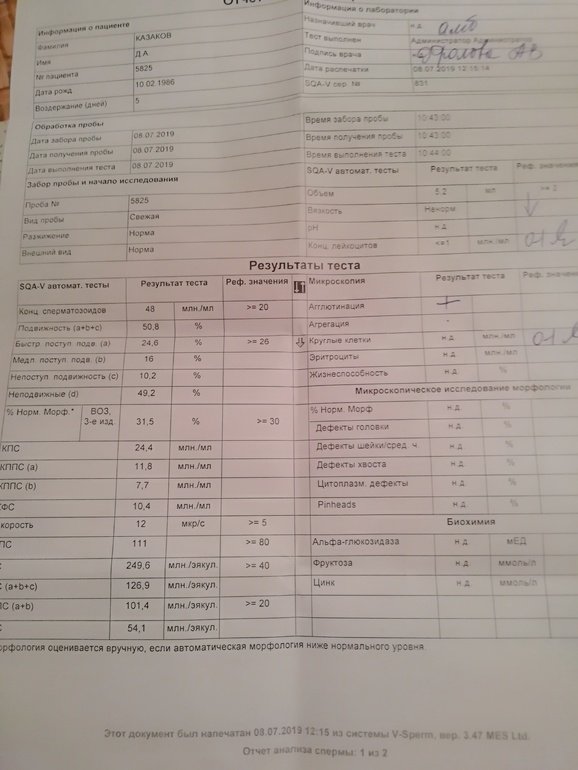 Информация о пациенте
Фамилия КАЗАКОВ
Имя Д.А.
№ пациента 5825
Дата рожд 10.02.1986
Воздержание (дней) 5
Информация о лаборатории
Назначивший врач н.д. амб
Тест выполнен Администратор Администратор
Подпись врача Фролова АВ
Дата распечатки 08.07.2019
SQA-V сер. № 831
Обработка пробы
Дата забора пробы 08.07.2019
Дата получения пробы 08.07.2019
Дата выполнения теста 08.07.2019
Время забора пробы 10:43:00
Время получения пробы 10:43:00
Время выполнения теста 10:44:00
Забор пробы и начало исследования
Проба № 5825
Вид пробы Свежая
Разжижение Норма
Внешний вид Норма
SQA-V автомат. тесты Результат теста Реф. значения
Объем 5.2 мл
Вязкость Ненорм
pH н.д.
Конц. лейкоцитов <=1 млн./мл
Результаты теста
SQA-V автомат. тесты Результат теста Реф. значения
Конц. сперматозоидов 48 млн./мл >= 20
Подвижность (a+b+c) 50,8 %
Быстр. поступ. подв. (a) 24,6 % >= 26
Медл. поступ. подв. (b) 16 %
Непоступ. подвижность (c) 10,2 %
Неподвижные (d) 49,2 %
% Норм. Морф.* ВОЗ, 3-е изд. 31,5 % >= 30
КПС 24,4 млн./мл
КППС (a) 11,8 млн./мл
КППС (b) 7,7 млн./мл
ФС 10,4 млн./мл
корость 12 мкр/с >= 5
ПС 111 >= 80
С 249,6 млн./эякул. >= 40
С (a+b+c) 126,9 млн./эякул.
ПС (a+b) 101,4 млн./эякул. >= 20
С 54,1 млн./эякул.
Микроскопия Результат теста Реф. значен
Агглютинация +
Агрегация -
Круглые клетки н.д. млн./мл
Эритроциты н.д. млн./мл
Жизнеспособность н.д. %
Микроскопическое исследование морфологии
% Норм. Морф н.д. %
Дефекты головки н.д. %
Дефекты шейки/сред. ч. н.д. %
Дефекты хвоста н.д. %
Цитоплазм. дефекты н.д. %
Pinheads н.д. %
Биохимия
Альфа-глюкозидаза н.д. мЕД
Фруктоза н.д. ммоль/л
Цинк н.д. ммоль/л
орфология оценивается вручную, если автоматическая морфология ниже нормального уровня
Этот документ был напечатан 08.07.2019 12:15 из системы V-Sperm, вер. 3.47 MES Ltd.
Отчет анализа спермы: 1 из 2